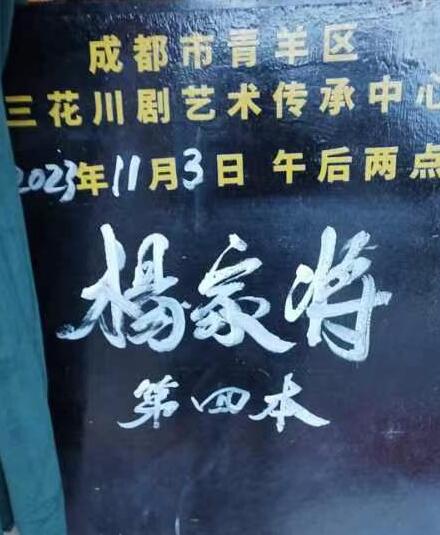 成都市青羊区
三花川剧艺术传承中心
2023年11月3日 午后两点
杨家将
第四本